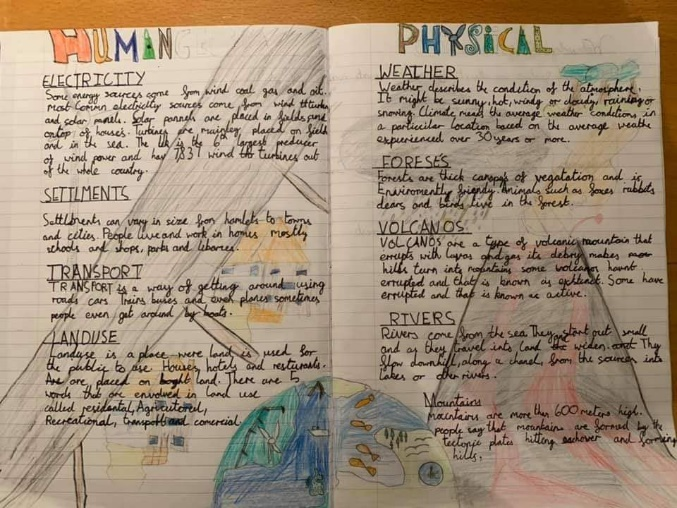 HUMAN
ELECTRICITY
Some energy sources come from wind coal gas and oil.
Most comon electricity sources come from wind
and solar panels. Solar pannels are placed in fields and
ontop of houses. Turbines are mainley placed on field
and in the sea. The UK is the 6th largest producer
of wind power and hav 7831 wind turbines out
of the whole country.
SETTLMENTS
Settlments can vary in size from hamlets to towns
and cities. People live and work in homes mostly
schools and shops, parks and libarees.
TRANSPORT
TRANSPORT is a way of getting around using
roads cars Trains buses and even planes sometimes
people even get around by boats.
LANDUSE
Landuse is a place were land is used for
the public to use. Houses hotels and resturants.
Are are placed on land. There are 5
words that are envolved in land use
called residental, Agricultural,
Recreational, transport and comercial.
PHYSICAL
WEATHER
Weather describes the condition of the atmosphere.
It might be sunny, hot, windy or cloudy, raining or
snowing. Climate means the average weather conditions in
a particuler location based on the average weathe
experienced over 30 years or more.
FORESES
Forests are thick canopys of vegatation and is
Enviromently friendly. Animals such as foxes rabbits
dears and birds live in the forest.
VOLCANOS
VOLCANOS are a type of volcanic mountain that
errupts with lavas and gas its debry makes
hills turn into mountains some volcanos havnt
errupted and that is known as extinct. Some have
errupted and that is known as active.
RIVERS
Rivers come from the sea. They start out small
and as they travel into land widen. They
flow downhill, along a chanel, from the sources into
Lakes or other rivers.
Mountains
mountains are more than 600 meters high.
people say that mountains are formed by the
tectonic plates hitting eachover and forming
hills.